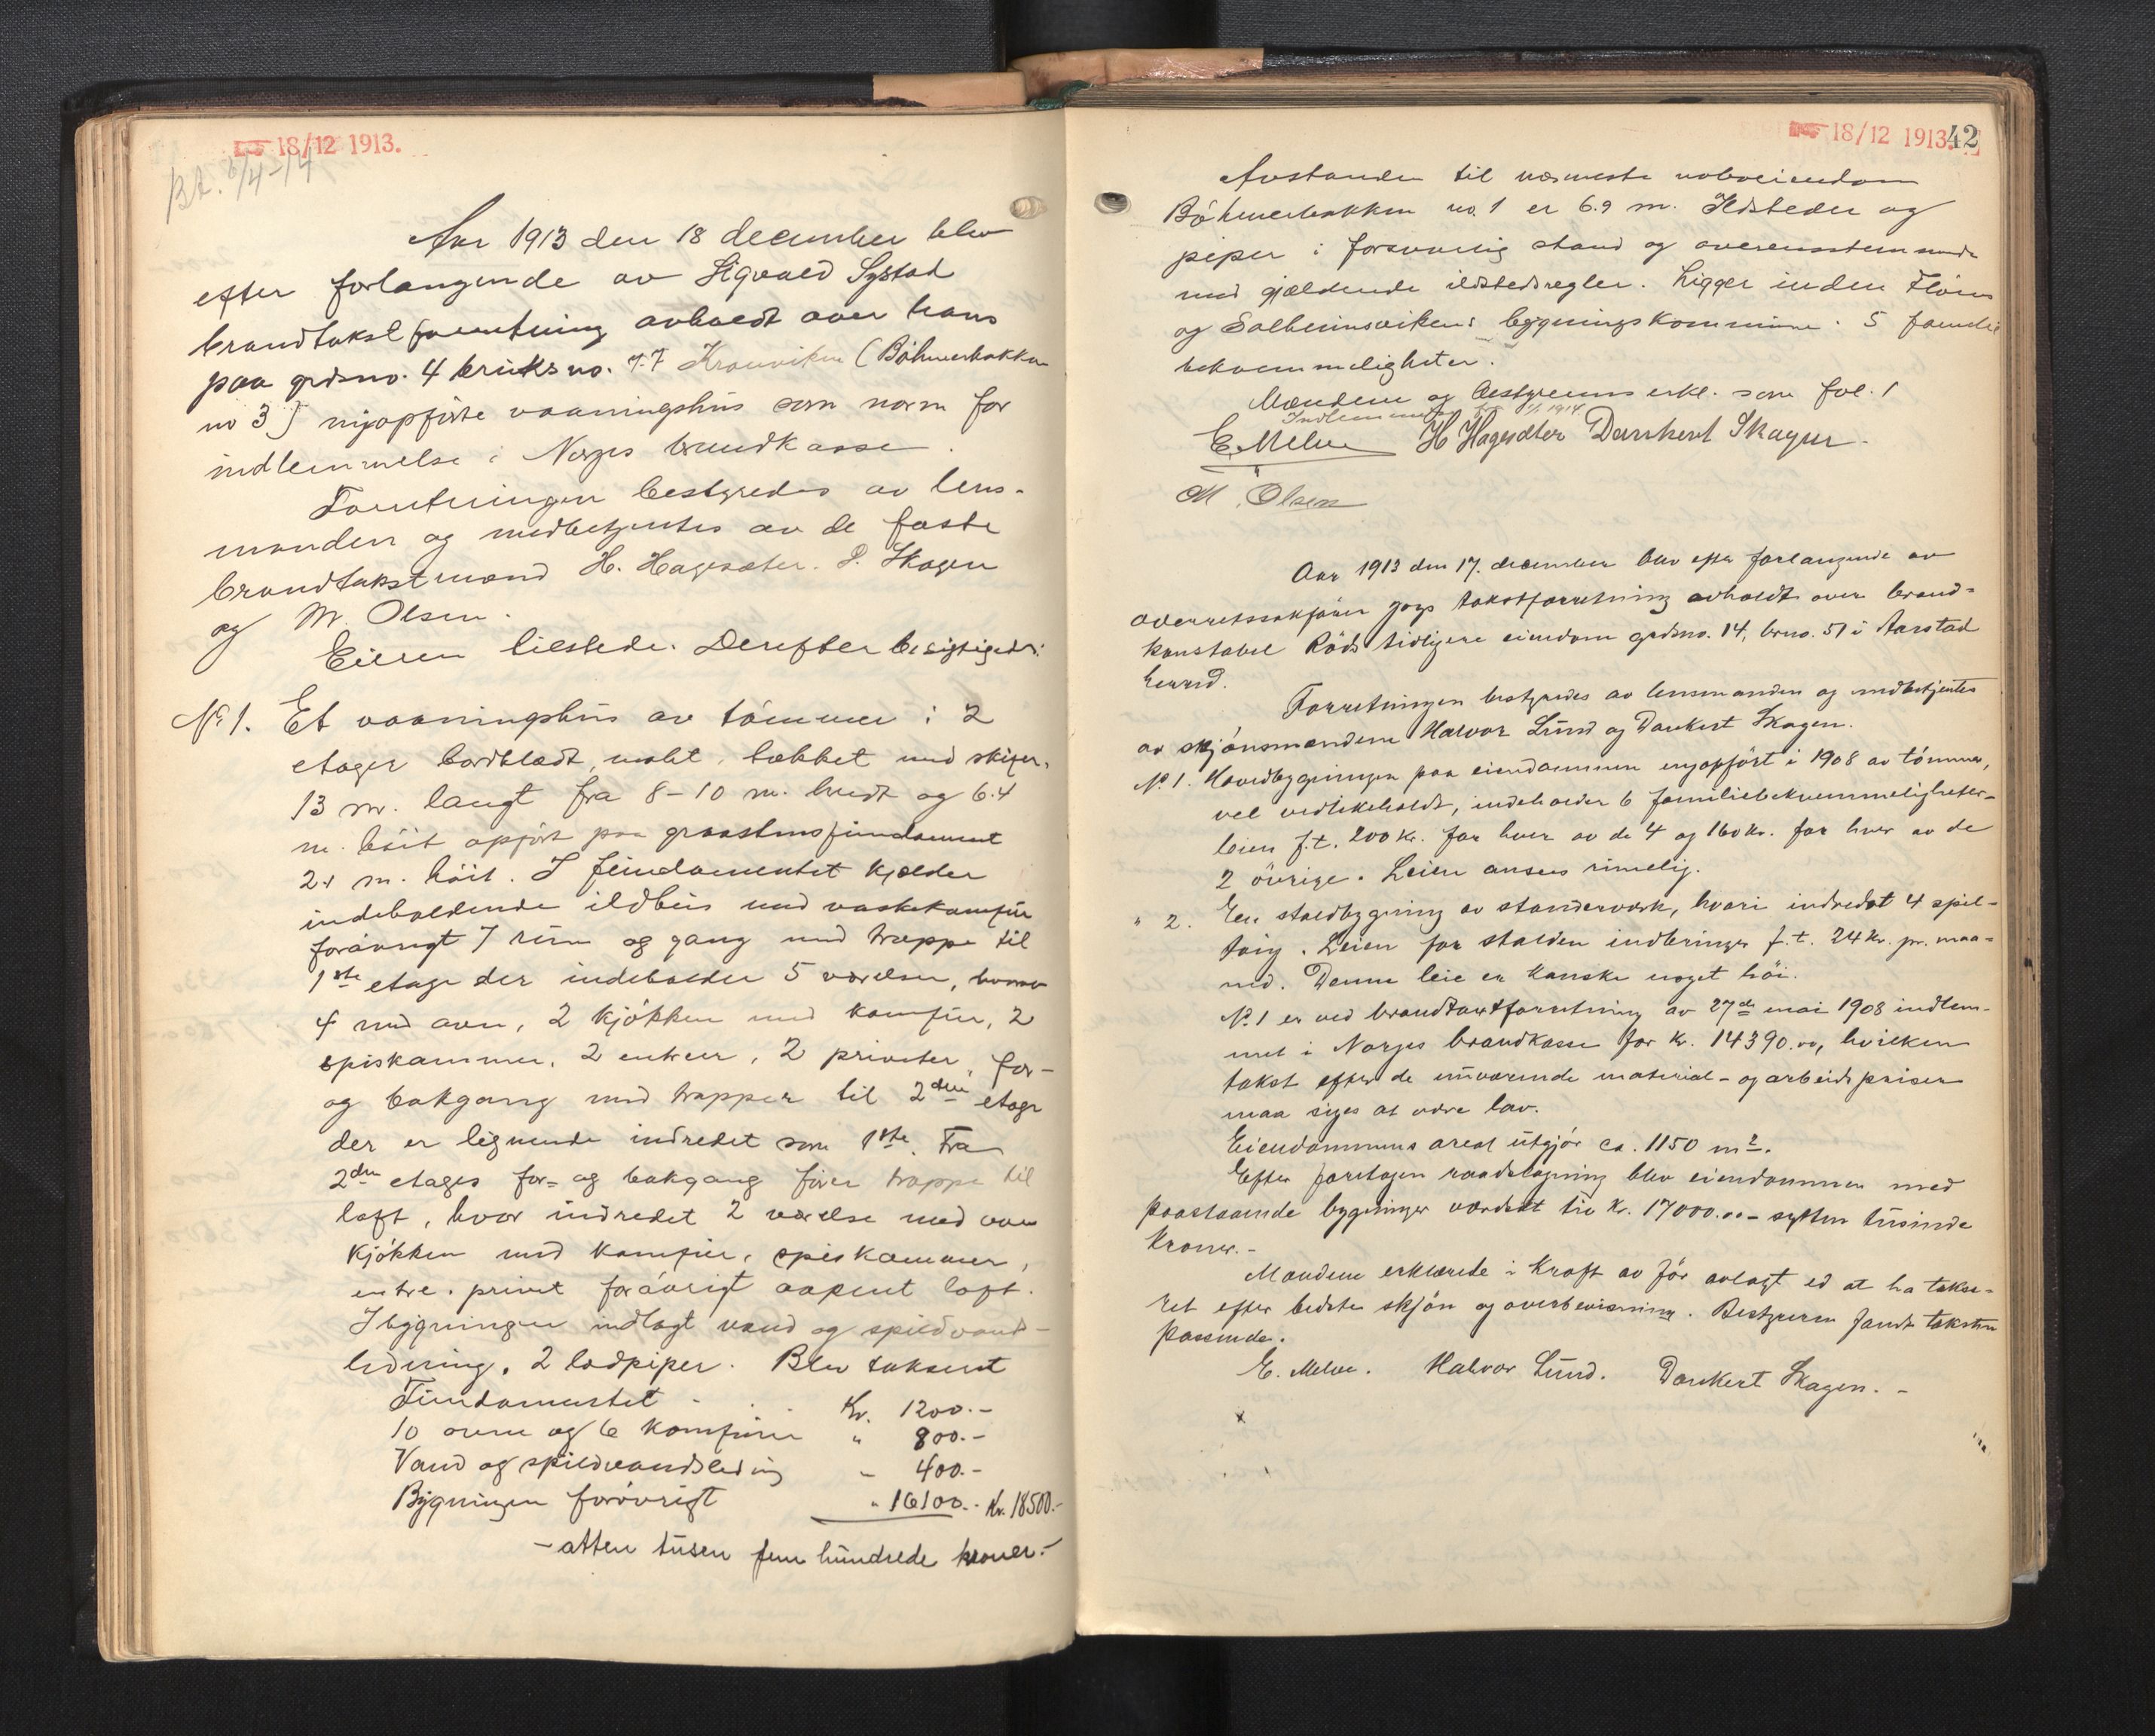 18/12 1913.
Bt. 8/4-14
Aar 1913 den 18 december blev
efter forlangende av Sigvald Systad
brandtakstforretning avholdt over hans
paa grdsno. 4 bruksno. 77 Kronviken (Böhmerbakken
no 3) nyopførte vaaningshus som norm for
indlemmelse i Norges brandkasse.
Forretningen bestyredes av lens-
manden og medbetjentes av de faste
brandtakstmænd H. Hagesæter. D. Skagen
og M. Olsen.
Eieren tilstede. Derefter besigtigedes:
No 1. Et vaaningshus av tömmer i 2
etager bordklædt, malt, tækket med skifer,
13 m. langt fra 8-10 m. bredt og 6.4
m. höit opført paa graastensfundament
2.1 m. höit. I fundamentet kjelder
indeholdende ildhus med vaskekomfur
forövrigt 7 rum og gang med trappe til
1ste etage der indeholder 5 værelser, hvorav
4 med ovn, 2 kjökken med komfur, 2
spiskammer, 2 entreer, 2 priveter, for-
og bakgang med trapper til 2den etage
der er lignende indredet som 1ste. Fra
2den etages for- og bakgang förer trappe til
loft, hvor indredet 2 værelse med ovn
kjökken med komfur, spiskammer,
entre, privet forövrigt aapent loft.
I bygningen indlagt vand og spildvand-
ledning. 2 lodpiper. Blev taksert
Fundamentet . . Kr. 1200.-
10 ovne og 6 komfurer " 800.-
Vand og spildvandsledning " 400.-
Bygningen forövrigt " 16100.- Kr. 18500.-
- atten tusen fem hundrede kroner.-
18/12 1913.
42
Avstanden til nærmeste naboeiendom
Böhmerbakken no. 1 er 6.9 m. Ildsteder og
piper i forsvarlig stand og overensstemmende
med gjældende ildstedsregler. Ligger inden Floens
og Solheimsvikens bygningskommune. 5 familie
bekvemmeligheter.
Mændene og bestyrerens erkl. som fol. 1
Indlemmet 1/1 1914.
E. Melve H Hagesæter Dankert Skagen.
M. Olsen
Aar 1913 den 17. december blev efter forlangende av
overretssakfører Jogs takstforretning avholdt over brand-
konstabel Röds tidligere eiendom grdsno. 14, brno. 51 i Aarstad
herred.
Forretningen bestyredes av lensmanden og medbetjentes
av skjönsmændene Halvor Lund og Dankert Skagen.
No 1. Hovedbygningen paa eiendommen nyopfört i 1908 av tömmer,
vel vedlikeholdt, indeholder 6 familiebekvemmeligheter-
leien f.t. 200 kr. for hver av de 4 og 160 kr. for hver av de
2 övrige. Leien ansees rimelig.
" 2. En staldbygning av standerværk, hvori indredet 4 spil-
taug. Leien for stalden indbringer f.t. 24 kr. pr. maa-
ned. Denne leie er kanske noget höi.
No 1 er ved brandtakstforretning av 27de mai 1908 indlem-
met i Norges brandkasse for kr. 14390.00, hvilken
takst efter de nuværende material- og arbeidspriser
maa siges at være lav.
Eiendommens areal utgjör ca. 1150 m2.
Efter foretagen raadslagning blev eiendommen med
paastaaende bygninger værdsatt til kr. 17000.00 - sytten tusinde
kroner.-
Mændene erklærede i kraft av för avlagt ed at ha takse-
ret efter bedste skjön og overbevisning. Bestyreren fandt taksten
passende.
E. Melve. Halvor Lund. Dankert Skagen. -